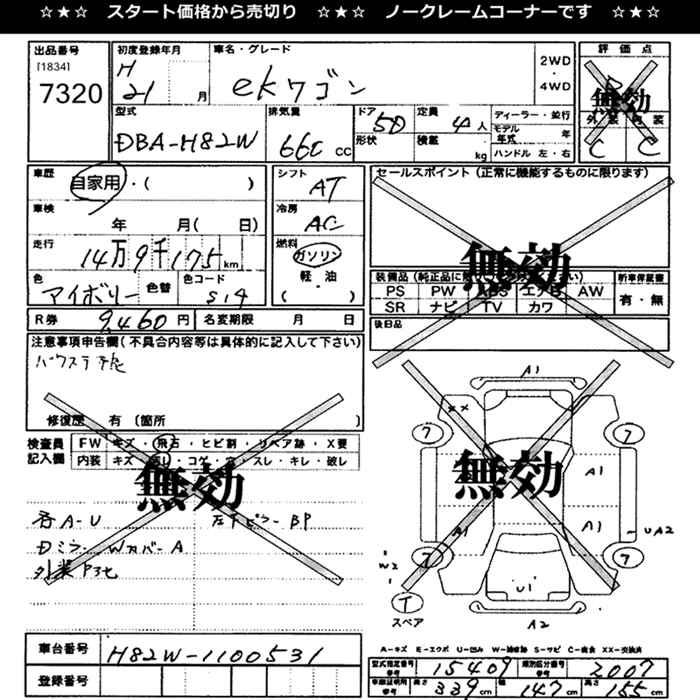 ☆★☆ スタート価格から売切り ☆★☆ ノークレームコーナーです ☆★☆
出品番号 初度登録年月 車名・グレード 評価点
[1834] H 2WD
7320 21 月 ekワゴン 4WD
無効
型式 排気量 ドア 定員 ディーラー・並行 外装 内装
DBA-H82W 660 cc 5D 4人 モデル年式 年 C C
形状 積載 kg ハンドル 左・右
車歴 シフト セールスポイント(正常に機能するものに限ります)
自家用・( ) AT
車検 冷房
年 月( 日) AC
走行 燃料 無効
14万9千175km ガソリン
色 色替 色コード 軽・油 装備品(純正品に
アイボリー S14 ( ) PS PW ABS エアB AW 新車保証書
SR ナビ TV カワ 有・無
R券 9,460円 名変期限 月 日 後日品
注意事項申告欄(不具合内容等は具体的に記入して下さい)
修復歴 有 (箇所 )
検査員 FW キズ・飛石・ヒビ割・リペア跡・X要
記入欄 内装 キズ・汚レ・コゲ・穴・スレ・キレ・破レ
無効
各A-U 左Fピラ-BP
DミラーWカバーA
外装
A1
XX
7 7
A1
無効
A1 A1 UA2
W2
7 7
U1
T
スペア A2
車台番号 H82W-1100531
登録番号
A-キズ E-エクボ U-凹み W-補修跡 S-サビ C-腐食 XX-交換済
型式指定番号 参考 15409 類別区分番号 参考 2007
車庫証明用 参考 長さ 339cm 幅 147cm 高さ 155cm